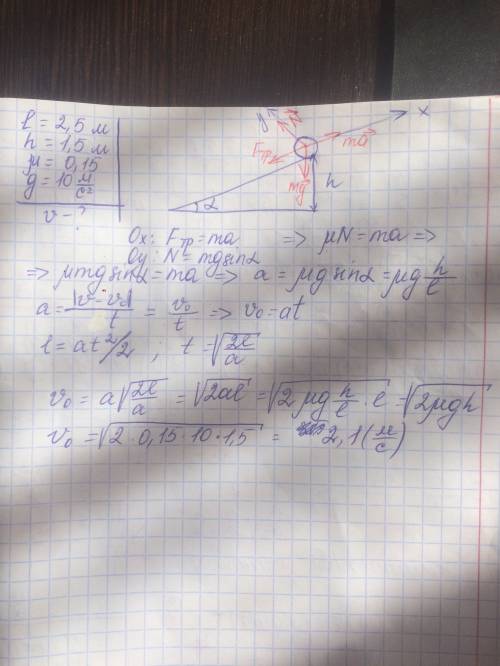 l = 2,5 м
h = 1,5 м
μ = 0,15
g = 10 м/с²
v - ?
y N x
Fтр ma
mg h
α
Ox: Fтр = ma => μN = ma =>
Oy: N = mg sinα
=> μmg sinα = ma => a = μg sinα = μg h/l
a = |v - v₀|/t = v₀/t => v₀ = at
l = at²/2 ; t = √(2l/a)
v₀ = a√(2l/a) = √(2al) = √(2μg h/l · l) = √(2μgh)
v₀ = √(2 · 0,15 · 10 · 1,5) = 2,1 (м/с)